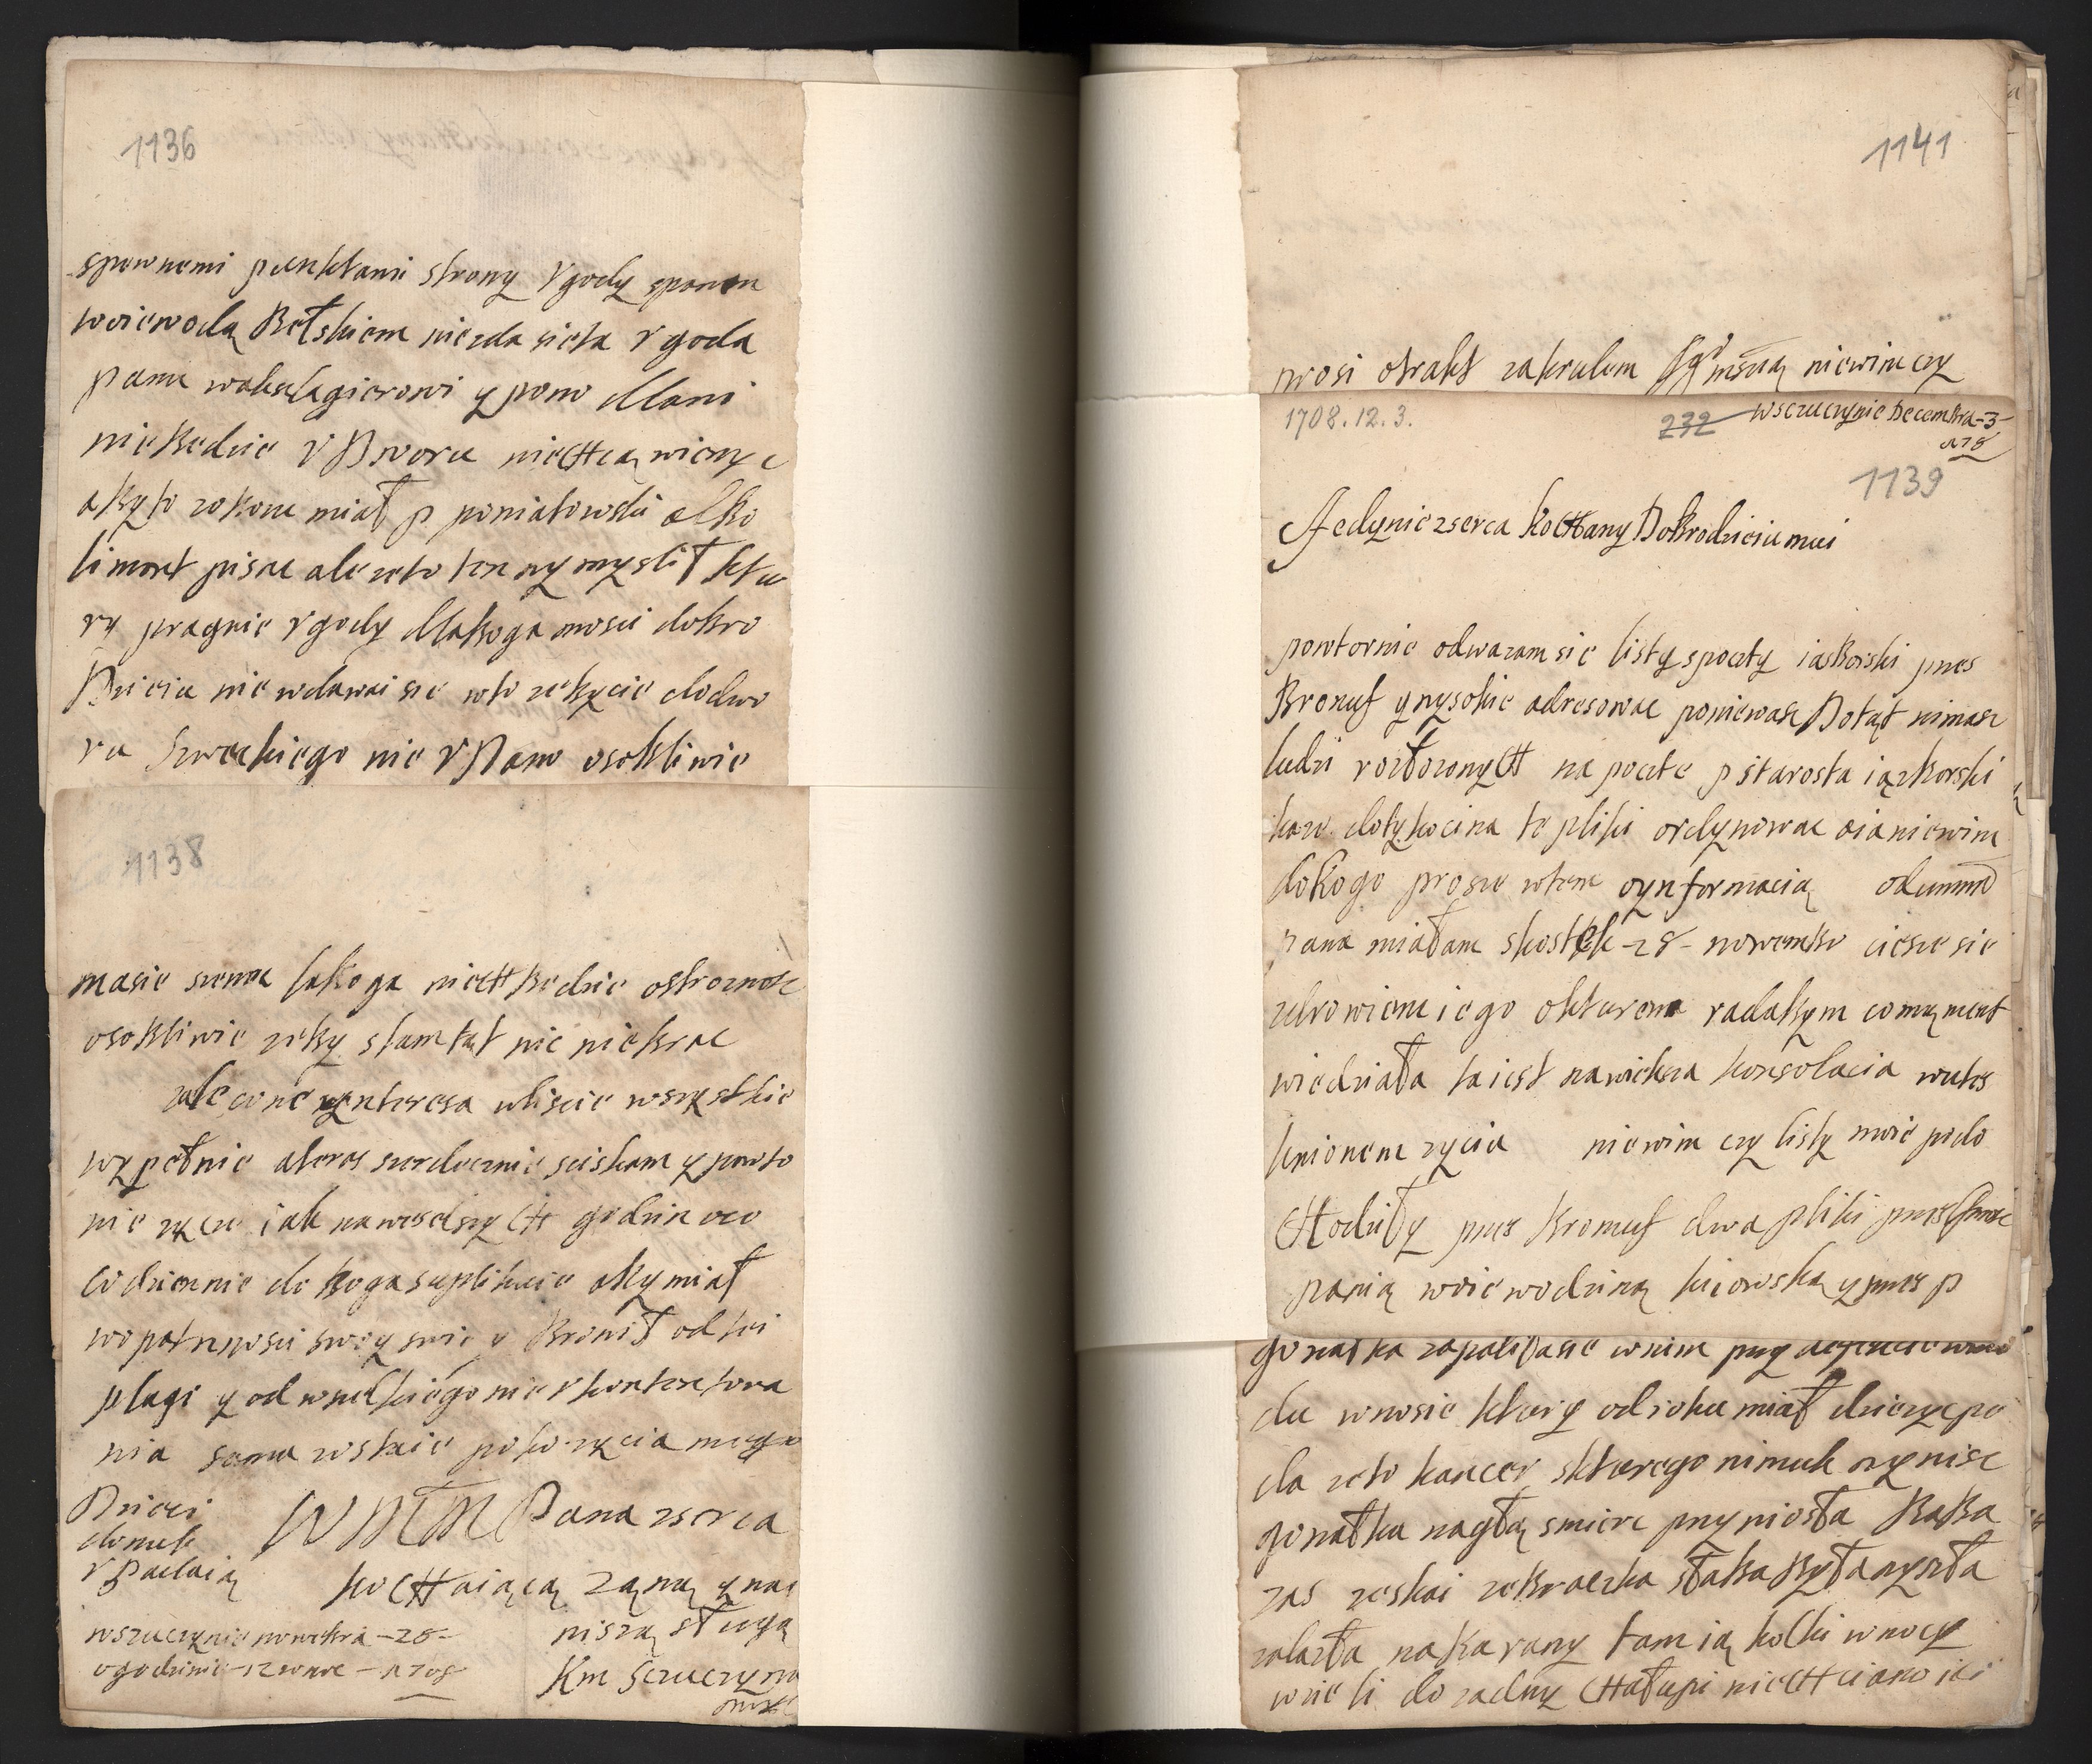 1136
spewnemi punktami strony Vgody spanem
woiewodą Bełskiem niezda sieta Vgoda
panu y pono Mani
niebedzie V Dworu nieCHcą wierzyc
abyto zobona miał p poniatowski albo
limont pisac ale zeto ten wymyslił ktu
ry pragnie Vgody Mlaboga mosci dobro
Dzieiu nie wdawai sie wto zebycie dodwo
ru Szweckiego nie V Dano osobliwie
1138
masie szemra laboga nieCH bedzie ostroznosc
osobliwie zeby stamtąt nic niebrac
zalecone ynteresa wliscie wszystkie
wypełnie ateras serdecznie sciskam y powto
nie zycze iak naweselszyCH godzin oco
codziennie do boga suplikuie aby miał
wopatrznosci swoy swie y bronił odtei
plagi y od wselkiego nie Vkontentowa
nia sama zostaie poko zycia mego
Dzieci
domuh
Vpadaią
WMM Pana zserca
koCHaiącą Zoną y nai
niszą sługą
wszuczynie nowebra -28-
ogodzinie -12 wnoc -1708
Km Szczuczyna
1141
prosi otrakt zakrulem niewim czy
1708.12.3.
232
wsczuczynie Decembra -3-
1708
1139
Jedynie zserca koCHany Dobrodzieiu mui
powtornie odwazam sie listy spoczty iasborski przes
Bronuf ywysokie adresowac poniewasz Dotąt nimasz
ludzi rozłozonyCH na poczte p starosta iązborski
kaze dotykocina te pliki ordynowac aianiewim
dokogo prosze wtem oynformacią odwmm
pana miałam skostek -28- nowembr ciesze sie
zdrowiem iego okturem radabym comąment
wiedziała taiest nawieksza konsolacia wutes
knionem zyciu niewim czy listy moie pido
CHodziły przes bronuf dwa pliki przes
panią woiewodziną kiiowską yprzes p
gonatka zapaliłasie wnim przy
du wnosie ktury odroku miał dziczyzpo
da zeto kancer skturego nimuk wynisc
gonatku nagłą smierc przyniosła Baba
zas zeskai zebraczka słaba była wyszła
zalazła nakarany tam ią kolki wnocy
wzieli do zadny CHałupi nieCHciano iei